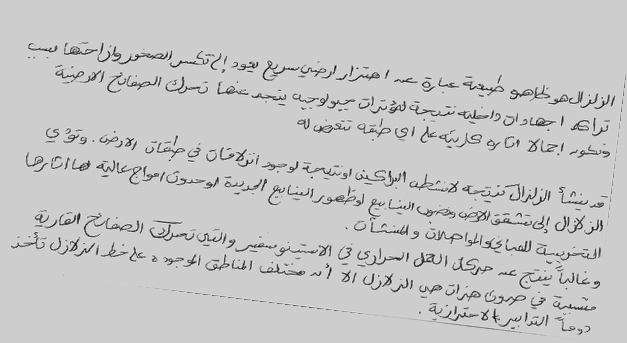 الزلزال هو ظاهرة طبيعية عبارة عن اهتزاز ارضي سريع يعود إلى تكسر الصخور وازاحتها بسبب
تراكم اجهادات داخلية نتيجة لمؤثرات جيولوجيه ينجم عنها تحرك الصفائح الارضية
وتكون اجمالا اثاره كارثيه على اي طبقه تتعرض له
قد ينشأ الزلزال كنتيجة لانشطة البراكين او نتيجة لوجود انزلاقات في طبقات الارض. وتؤدي
الزلازال إلى تشقق الارض ونضوب الينابيع او ظهور الينابيع الجديدة او حدوث امواج عالية لها اثارها
التخريبية للمباني والمواصلات والمنشأت.
وغالباً ينتج عن حركات الحمل الحراري في الاستينوسفير والتي تحرك الصفائح القارية
متسببة في حدوث هزات هي الزلازل الا أن مختلف المناطق الموجوده على خط الزلازل تأخذ
دوماً التدابير الاحترازية.